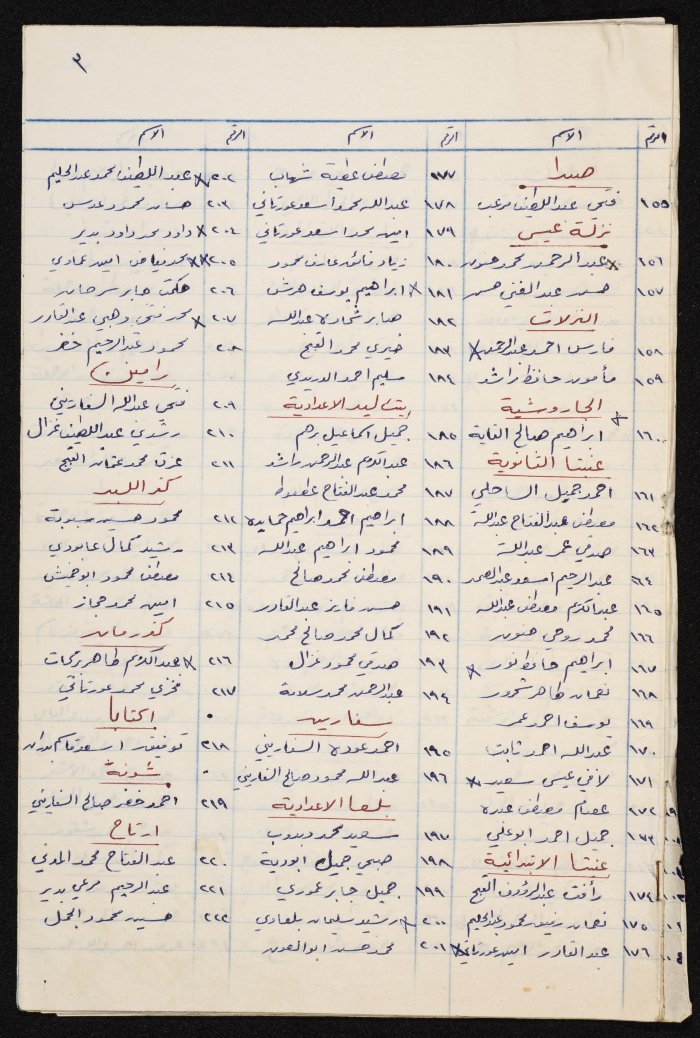 ٣
الرقم الاسم
صيدا
١٥٥ فتحي عبد اللطيف مرعب
نزلة عيسى
١٥٦ x عبد الرحمن محمد حسون
١٥٧ حسن عبد الغني حسن
النزلات
١٥٨ فارس احمد عبد الرحمن x
١٥٩ مأمون حافظ راشد
الجاروشية
١٦٠ x ابراهيم صالح الغاية
عنبتا الثانوية
١٦١ احمد جميل الساحلي
١٦٢ مصطفى عبد الفتاح عبد الله
١٦٣ صدقي عمر عبد الله
١٦٤ عبد الرحيم اسعد عبد الصمد
١٦٥ عبد الكريم مصطفى عبد الله
١٦٦ محمد روحي حنون
١٦٧ ابراهيم حافظ نور x
١٦٨ نعمان طاهر شحرور
١٦٩ يوسف احمد عمر
١٧٠ عبد الله احمد ثابت
١٧١ لافي عيسى سعيد x
١٧٢ عصام مصطفى عبده
١٧٣ جميل احمد ابو علي
عنبتا الابتدائية
١٧٤ رأفت عبد الرؤوف القبج
١٧٥ نعمان رفيق محمود عبد الحليم
١٧٦ عبد القادر امين عورتاني x
الرقم الاسم
١٧٧ مصطفى عطية شهاب
١٧٨ عبد الله محمد اسعد عورتاني
١٧٩ امين محمد اسعد عورتاني
١٨٠ زياد فائق عارف محمود
١٨١ x ابراهيم يوسف هرش
١٨٢ صابر شحاده عبد الله
١٨٣ خيري محمد القبج
١٨٤ سليم احمد الدريدي
بيت ليد الاعدادية
١٨٥ جميل اسماعيل برهم
١٨٦ عبد الكريم عبد الرحمن راشد
١٨٧ محمد عبد الفتاح غطوط
١٨٨ ابراهيم احمد ابراهيم حمايده
١٨٩ محمود ابراهيم عبد الله
١٩٠ مصطفى محمد صالح
١٩١ حسن فايز عبد القادر
١٩٢ كمال محمد صالح محمد
١٩٣ صدقي محمود غزال
١٩٤ عبد الرحمن محمد سلامة
سفارين
١٩٥ احمد عوده السفاريني
١٩٦ عبد الله محمود صالح السفاريني
بلعا الاعدادية
١٩٧ سعيد محمد دبدوب
١٩٨ صبحي جميل ابو دية
١٩٩ جميل جابر عموري
٢٠٠ x رشيد سليمان بلعاوي
٢٠١ محمد حسن ابو العون
الرقم الاسم
٢٠٢ x عبد اللطيف محمد عبد الحليم
٢٠٣ حسان محمود عدس
٢٠٤ x داود محمد داود بدير
٢٠٥ xx محمد فياض امين عماوي
٢٠٦ حكمت جابر سرحان
٢٠٧ x محمد فتحي وهبي عبد القادر
٢٠٨ محمود عبد الرحيم خضر
رامين
٢٠٩ فتحي عبد الله السفاريني
٢١٠ رشدي عبد اللطيف غزال
٢١١ عزت محمد عثمان القبج
كفر اللبد
٢١٢ محمود حسين سبوبة
٢١٣ رشيد كمال عابودي
٢١٤ مصطفى محمود ابو حميش
٢١٥ امين محمد حجاز
كفر رمان
٢١٦ x عبد الكريم طاهر بركات
٢١٧ فخري محمد عورتاني
اكتابا
٢١٨ توفيق اسعد قاسم بدران
شوفة
٢١٩ احمد خضر صالح السفاريني
ارتاح
٢٢٠ عبد الفتاح محمد المدني
٢٢١ عبد الرحيم مرعي بدير
٢٢٢ حسين محمود الجمل